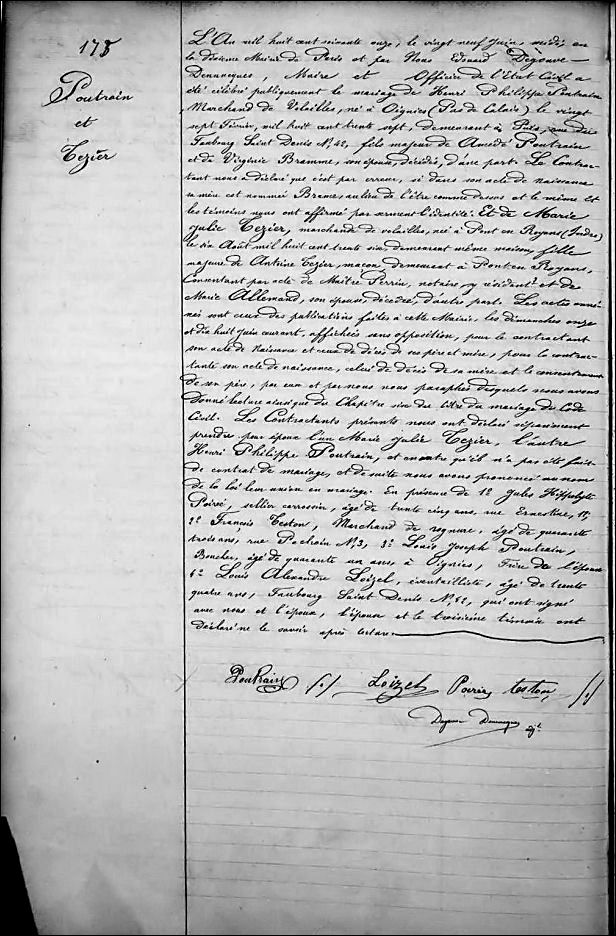 178
Poutrain
et
Tezier
L'An mil huit cent soixante onze, le vingt neuf Juin, midi, en
la dixième Mairie de Paris et par Nous Edouard Degouve-
Denuncques, Maire et Officier de l'Etat Civil a
été célébré publiquement le mariage de Henri Philippe Poutrain
Marchand de Volailles, né à Oignies (Pas de Calais) le vingt
sept Février, mil huit cent trente sept, demeurant à Paris, rue du
Faubourg Saint Denis No. 42, fils majeur de Amédé Poutrain
et de Virginie Bramme, son épouse, décédés, d'une part. Le Contrac-
tant nous a déclaré que c'est par erreur, si dans son acte de naissance
sa mère est nommée Brame, au lieu de l'être comme dessus et le même et
les témoins nous ont affirmé par serment l'identité. Et de Marie
Julie Tezier, marchande de volailles, née à Pont en Royans, (Indre)
le six Août mil huit cent trente six demeurant même maison, fille
majeure de Antoine Tezier, maçon, demeurant à Pont en Royans,
Consentant par acte de Maître Perrin, notaire, y résidant et de
Marie Allemand, son épouse, décédée, d'autre part. Les actes annè-
xés sont ceux des publications faites à cette Mairie, les dimanches onze
et dix huit Juin courant, affichées sans opposition, pour le contractant
son acte de Naissance et ceux de décès de ses père et mère, pour la contrac-
tante son acte de naissance, celui de décès de sa mère et le consentement
de son père, par eux et par nous paraphés desquels nous avons
donné lecture ainsi que du Chapitre six du titre du mariage du Code
Civil. Les Contractants présents nous ont déclaré séparément
prendre pour époux l'un Marie Julie Tezier, l'autre
Henri Philippe Poutrain, et en outre qu'il n'a pas été fait
de contrat de mariage, et de suite nous avons prononcé au nom
de la loi leur union en mariage. En présence de 1º Jules Hippolyte
Poirié, sellier carrossier, âgé de trente cinq ans, rue Ernestine, 17,
2º François Teston, Marchand de rognure, âgé de quarante
trois ans, rue No. 3, 3º Louis Joseph Poutrain,
Boucher, âgé de quarante un ans, à Oignies, Frère de l'époux
4º Louis Alexandre Loizel, éventailliste, âgé de trente
quatre ans, Faubourg Saint Denis No. 42, qui ont signé
avec nous et l'époux, l'épouse et le troisième témoin ont
déclaré ne le savoir après lecture.
Poutrain Loizel Poirié teston
Degouve Denuncques